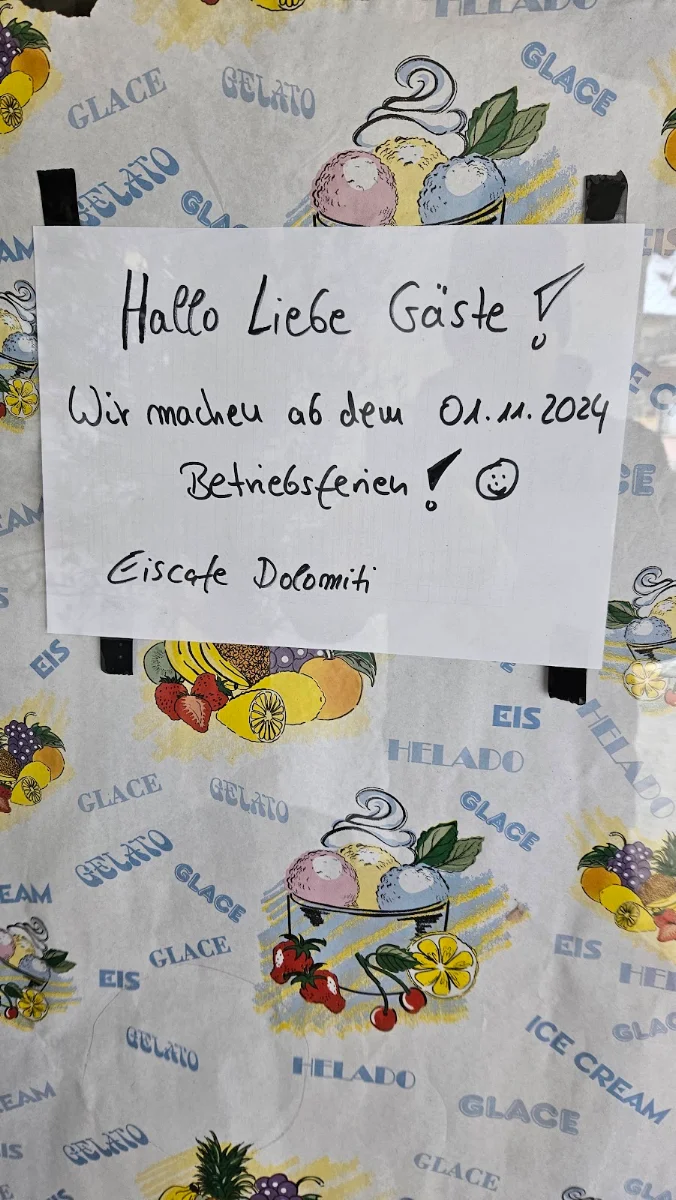 HELADO
GLACE
GELATO
GLACE
GELATO
GLACE
Hallo Liebe Gäste!
Wir machen ab dem 01.11.2024
Betriebsferien! ☺
Eiscafe Dolomiti
EIS
EIS
HELADO
HELADO
GLACE
GELATO
GLACE
GELATO
GLACE
EAM
GLACE
EIS
EIS
HEL
GELATO
ICE CREAM
GLAC
HELADO
EAM
GLACE
GELATO
EIS
GLACE
EIS